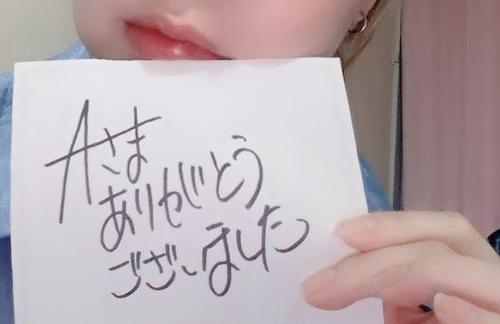 Aさま
ありがとう
ございました